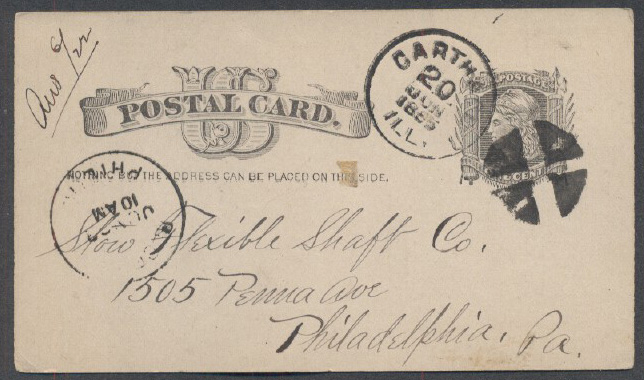 Ans 6/22
U S
POSTAL CARD.
CARTH
20
JUN
1885
ILL.
POSTAGE
CENT
NOTHING BUT THE ADDRESS CAN BE PLACED ON THIS SIDE.
10 AM
Stow Flexible Shaft Co.
1505 Penna Ave
Philadelphia, Pa.